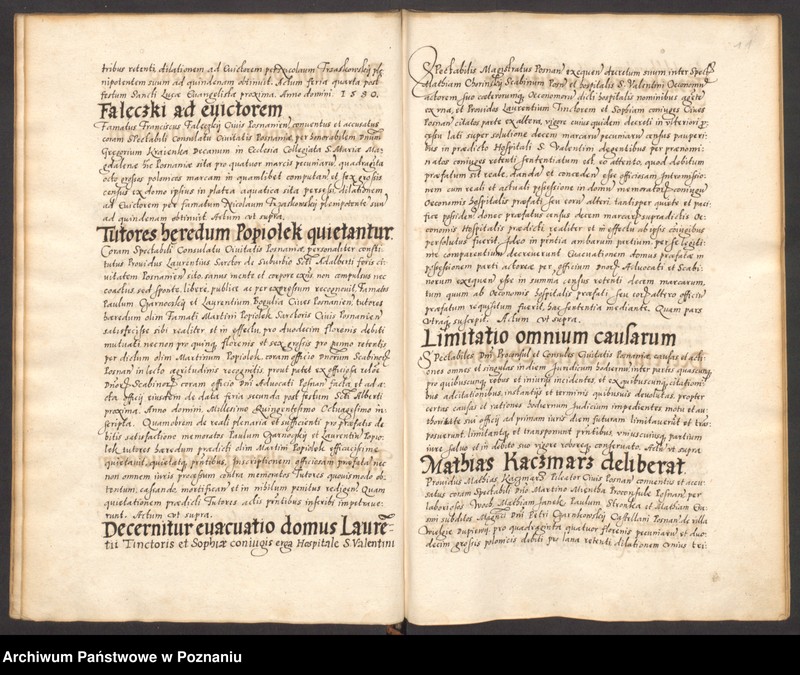 tribus retenti dilationem ad Evictorem per Nicolaum Trzaskowskij ple
nipotentem suum ad quindenam obtinuit. Actum feria quarta post
festum Sancti Lucæ Evangelistæ proxima. Anno domini. 1580.
Fałeczki ad evictorem
Famatus Franciscus Fałeczkij Civis Posnanien̄ conventus et accusatus
coram Spectabili Consulatu Civitatis Posnaniæ per honorabilem Dnum
Gregorium Kraienka Decanum in Ecclesia Collegiata S. Mariæ Ma
gdalenæ hic Posnaniæ sita pro quatuor marcis pecuniarū quadraginta
octo grossos polonicos marcam in quamlibet computan̄ et sex grossis
census ex domo ipsius in platea aquatica sita dilationem
ad Evictorem per famatum Nicolaum Trzaskowskij plenipotentem suum
ad quindenam obtinuit Actum ut supra.
Tutores heredum Popiołek quietantur.
Coram Spectabili Consulatu Civitatis Posnaniæ personaliter consti
tutus Providus Laurentius Sartor de Suburbio Scti Adalberti foris ci
vitatem Posnanien̄ sito sanus mente et corpore non compulsus nec
coactus, sed sponte, libere, publice ac per expressum recognovit. Famatos
Paulum Garnoczkij et Laurentium Cives Posnanien̄, tutores
hæredum olim Famati Martini Popiołek Sartoris Civis Posnanien̄
satisfecisse sibi realiter et in effectu, pro duodecim florenis debiti
mutuati necnon pro quinq florenis et sex grossis pro panno retentis
per dictum olim Martinum Popiołek, coram officio Dnorum Scabinorū
Posnan̄ in lecto ægritudinis recognitis, prout patet ex officiosa
Dnorū Scabinorū coram officio Dni Advocati Posnan̄ facta et ad a
cta officij eiusdem de data feria secunda post festum Scti Alberti
proxima. Anno domini. Millesimo Quingentesimo Octuagesimo in
scripta. Quamobrem de reali plenaria et sufficienti pro præfatis de
bitis satisfactione memoratos Paulum Garnoczkij et Laurentiū Popio
łek, tutores hæredum prædicti olim Martini Popiołek efficacissime
quietavit, quietatq præntibus. Inscriptionem officiosam præfatā nec
non omnem iuris processum contra memoratos Tutores quovismodo ob
tentum, cassando, mortifican̄ et in nihilum penitus redigen̄. Quam
quietationem prædicti Tutores actis præntibus inscribi impetrave
runt. Actum ut supra.
Decernitur evacuatio domus Laure-
tii Tinctoris et Sophiæ coniugis erga Hospitale S. Valentini
Spectabilis Magistratus Posnan̄ exequen̄ decretum suum inter Spectlē
Mathiam Scabinum Posn̄ et hospitalis S. Valentini Oeconomū
actorem, suo cæterorumq Oeconomorū dicti hospitalis nominibus agen̄
ex una, et Providos Laurentium Tinctorem et Sophiam coniuges Cives
Posnan̄ citatos parte ex altera, vigore cuius quidem decreti in ulteriori p
cessu lati super solutione decem marcarū pecuniarū census pauperi
bus in prædicto Hospitali S. Valentini degentibus per prænomi
natos coniuges retenti sententiatum est, eo attento, quod debitum
præfatum sit reale, dandā et conceden̄ esse officiosam intromissio
nem cum reali et actuali possessione in domū memoratorū coniugū
Oeconomis hospitalis præfati seu eorū alteri tandiq quiete et paci
fice possiden̄ donec præfatus census decem marcarū supradictis Oe
conomis Hospitalis prædicti realiter et in effectu ab ipsis coniugibus
persolutus fuerit. Ideo in præntia ambarum partium per se legiti
me comparentium decreverunt Evacuationem domus præfatæ in
possessionem parti actoreæ per officium Dnorū Advocati et Scabi
norum exequen̄ esse in summa census retenti decem marcarum,
tum quum ab Oeconomis hospitalis præfati seu eorū altero officiū
præfatum requisitum fuerit, hac sententia mediante. Quem pars
utraq suscepit. Actum ut supra.
Limitatio omnium causarum
Spectabiles Dni Proconsul et Consules Civitatis Posnaniæ causas et acti
ones omnes et singulas in diem Juridicum hodiernū inter partes quascunq
pro quibuscunq rebus et iniurijs incidentes, et ex quibuscunq citationi
bus adcitationibus, instantijs et terminis quibusvis devolutas, propter
certas causas et rationes hodiernum Judicium impedientes motu et au
thoritate sui officij ad primam iuris diem futuram limitaverūt et trās
posuerunt limitantq et transponunt præntibus, uniuscuiusq partium
iure salvo et in debito suo vigore roboreq conservato. Actū ut supra
Mathias Kaczmarz deliberat.
Providus Mathias Kaczmarz Pileator Civis Posnan̄ conventus et accu
satus coram Spectabili Dno Martino Micentha Proconsule Posnan̄ per
laboriosos Mathiam Janek, Paulum Stronka et Mathiam Ga
sin subditos Magnici Dni Petri Czarnkowskij Castellani Posnan̄ de villa
pro quadraginta quatuor florenis pecuniarū et duo
decim grossis polonicis debiti pro lana retenti dilationem unius tri
Archiwum Państwowe w Poznaniu